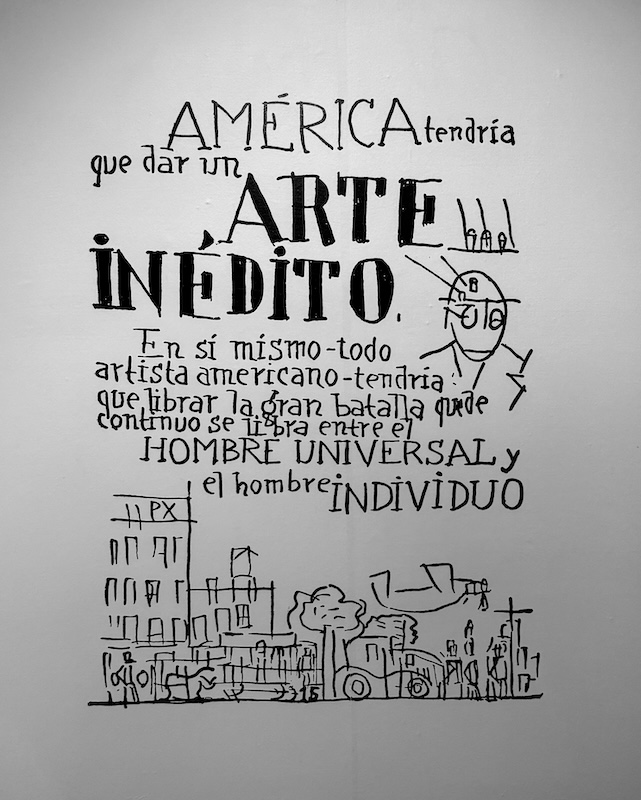 AMÉRICA tendría
que dar un
ARTE
INÉDITO.
En sí mismo-todo
artista americano-tendría
que librar la gran batalla que de
continuo se libra entre el
HOMBRE UNIVERSAL y
el hombre INDIVIDUO
B
PX
15